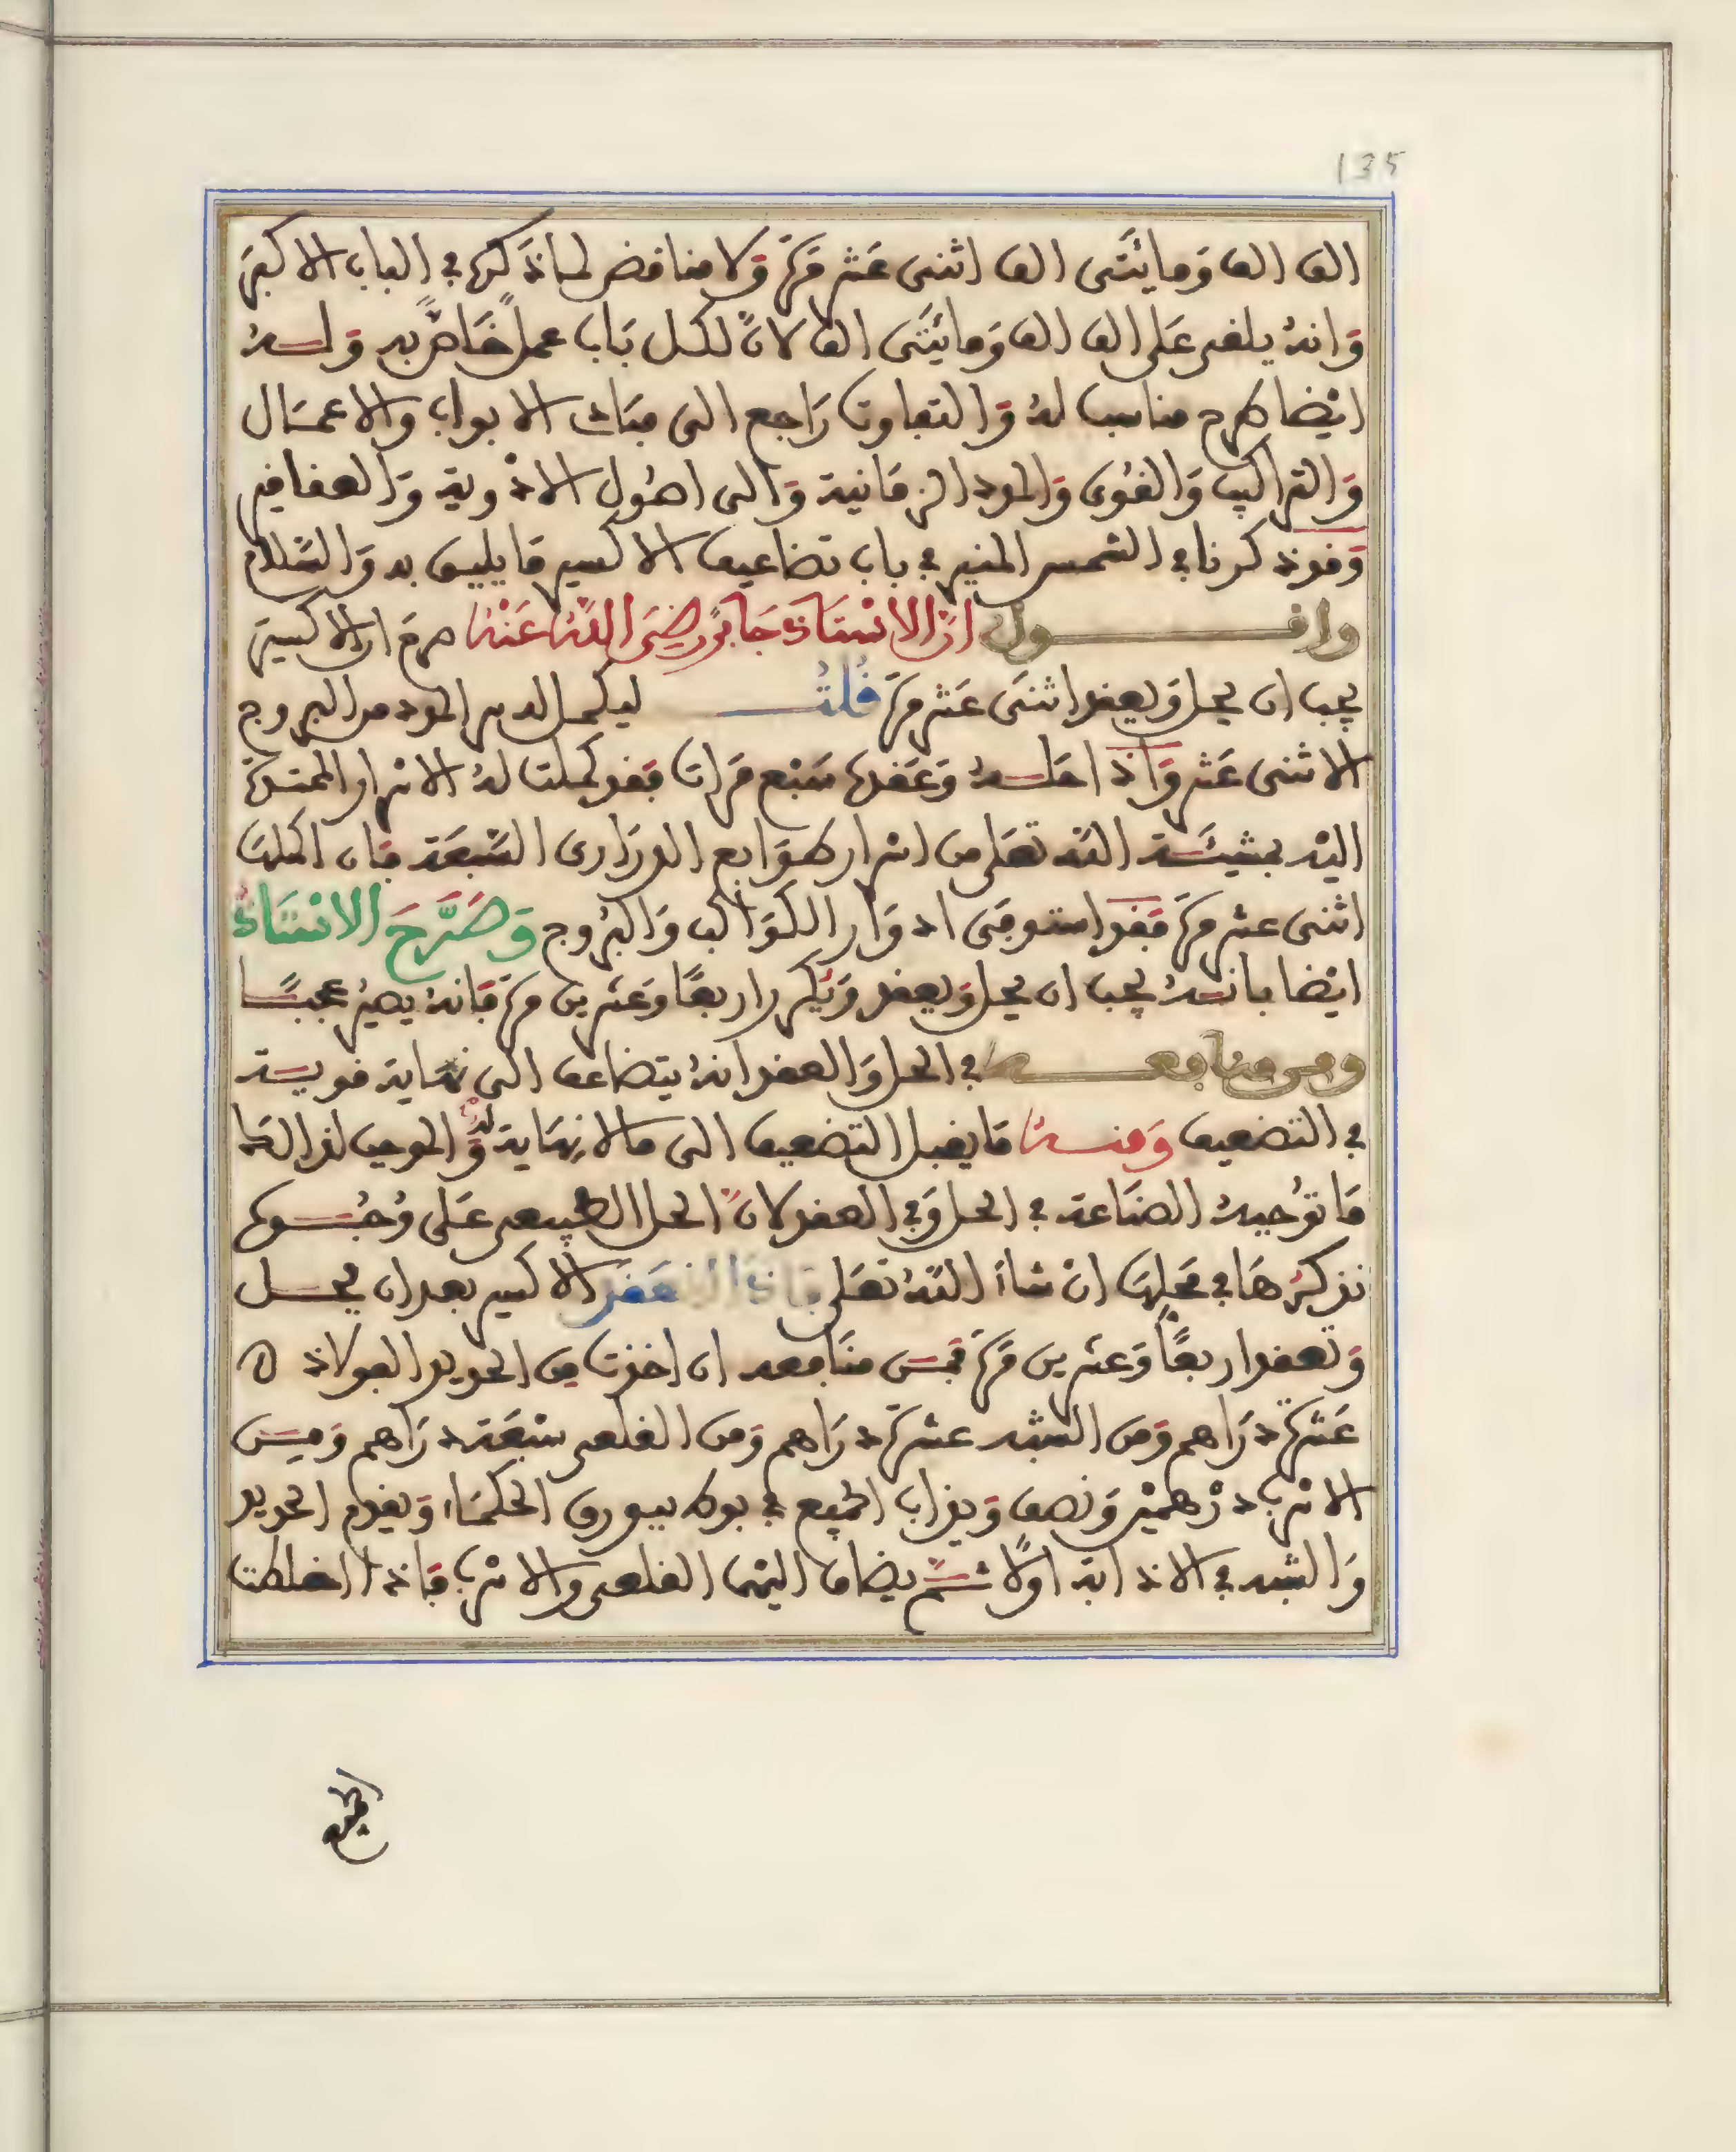 135
الف الف وَمايتَى الف اثنى عَشر مَرّة وَلا مناقض لما ذكر في الباب الاكبر
وَانهُ يلغى عَلى الف الف وَمايتَى الف لانّ لكل بَاب عملًا خَاصًّا به وَلـــهُ
ايْضا طرح مناسب لهُ وَالتفاوت رَاجع الى مبَاد الابواب والاعمَال
وَالتراكيب وَالقوى وَالمدد الزمَانية وَالى اصُول الادْوية وَالعقاقير
وَقد ذكرنا في الشمس المنير في باب تضاعيف الاكسير مَا يليق به وَالسَّلام
واقـــول انّ الاسْتَاذ جَابرًا رضيَ اللّهُ عَنْهُ صرحَ ان الاكسير
يجب ان يحل وَيعقد اثنَى عَشر مرَة قُلْتُ ليكمل له سر المدد من البروج
الاثنى عَشر وَاذا حلـهُ وَعَقدهُ سَبْع مَرات فقد كملت لهُ الاسْرار الممتدّة
اليْه بمشيئَـة اللّه تعَلى من اسْرار طوَابع الدرَارى السَّبعَة فان اكملت
اثنى عشر مرة فَقد استوفى ادوَار الكوَاكب وَالبُروج وَصَرَّحَ الاسْتَاذُ
ايْضا بانـهُ يجب ان يحل وَيعقد وَيكرر اربعًا وَعشرين مرةَ فَانهُ يصيرُ عجبًـا
ومن منافعـــه في الحل وَالعقد انهُ يتضاعف الى نهَاية قويــة
في التضعيف وَمنــهُ مَا يقبل التضعيف الى مالا نِهَاية لهُ وَالموجب لذالك
مَا توُجبهُ الصنَاعة في الحل وَفي العقد لانّ الحل الطبيعى عَلى وُجُـوه
نذكرُهَا في مَحلِها انْ شاءَ اللّهُ تعَلى فاذا انعَقدَ الاكسير بعد ان يحـل
وَتعقد اربعًا وَعشرين مَرة فمن منَافعه ان اخذت من الحديد الفولاذ ه
عَشرة دَرَاهم وَمن الشبه عشرةَ دَرَاهم وَمن القلعى سَبْعَة درَاهم وَمـن
الاسْرب درْهميْن وَنصف وَيذاب الجميع في بوط ببورق الحكمَاء وَيقدم الحديد
وَالشبه في الاذابة اولًا ثـمّ يضاف اليْهما القلعى والاسْرب فَاذا اختلطت
الجميع